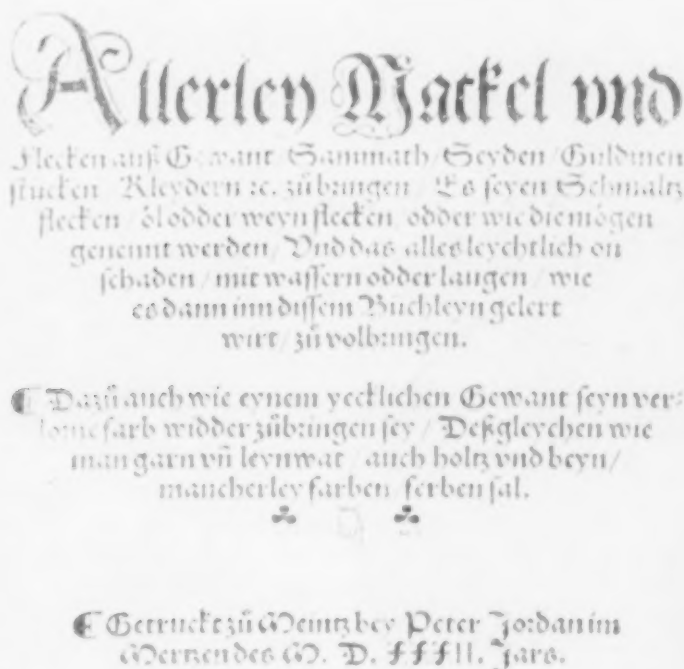 Allerley Mackel vnd
Flecken auß Gewant Sammath / Seyden / Guldinen
stucken / Kleydern ⁊c. zůbringen / Es seyen Schmaltz
flecken / öl odder weynflecken / odder wie die mögen
genennt werden / Vnd das alles leychtlich on
schaden / mit wassern odder laugen / wie
es dann inn dissem Büchleyn gelert
wirt / zů volbringen.
¶ Dazů auch wie eynem yecklichen Gewant seyn ver⸗
lorne farb widder zůbringen sey / Deßgleychen wie
man garn vñ leynwat / auch holtz vnd beyn /
mancherley farben / ferben sal.
¶ Getruckt zů Meintz bey Peter Jordan im
Mertzen des M. D. XXXII. Jars.